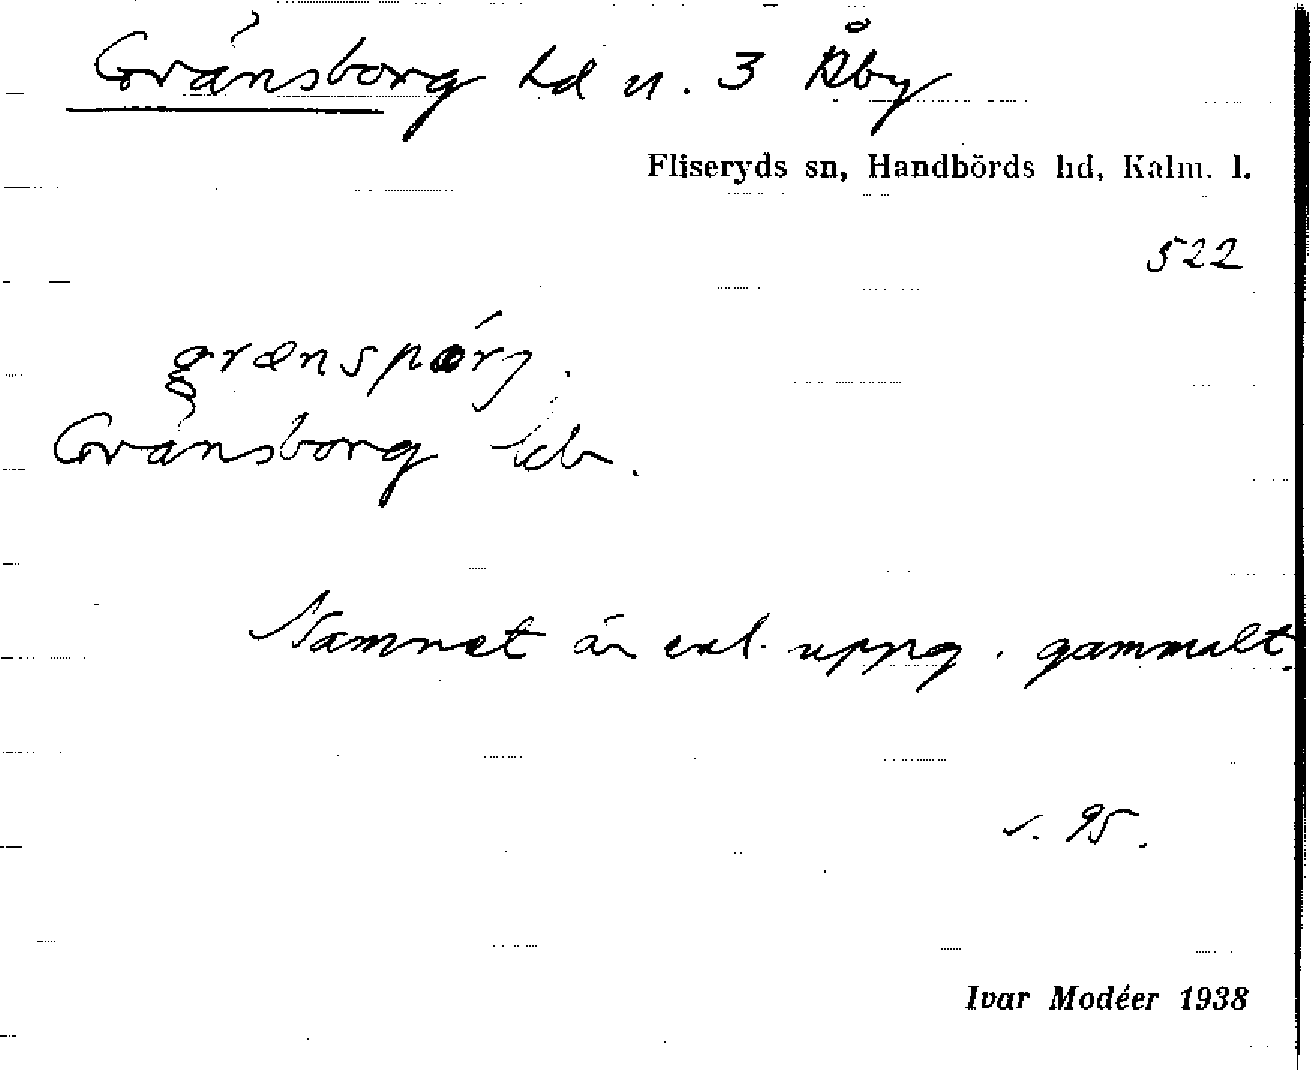 Gränsborg ld n. 3 Åby
Fliseryds sn, Handbörds hd, Kalm. l.
522
grænspórj.
Gränsborg kb.
Namnet är enl. uppg. gammalt.
s. 95.
Ivar Modéer 1938